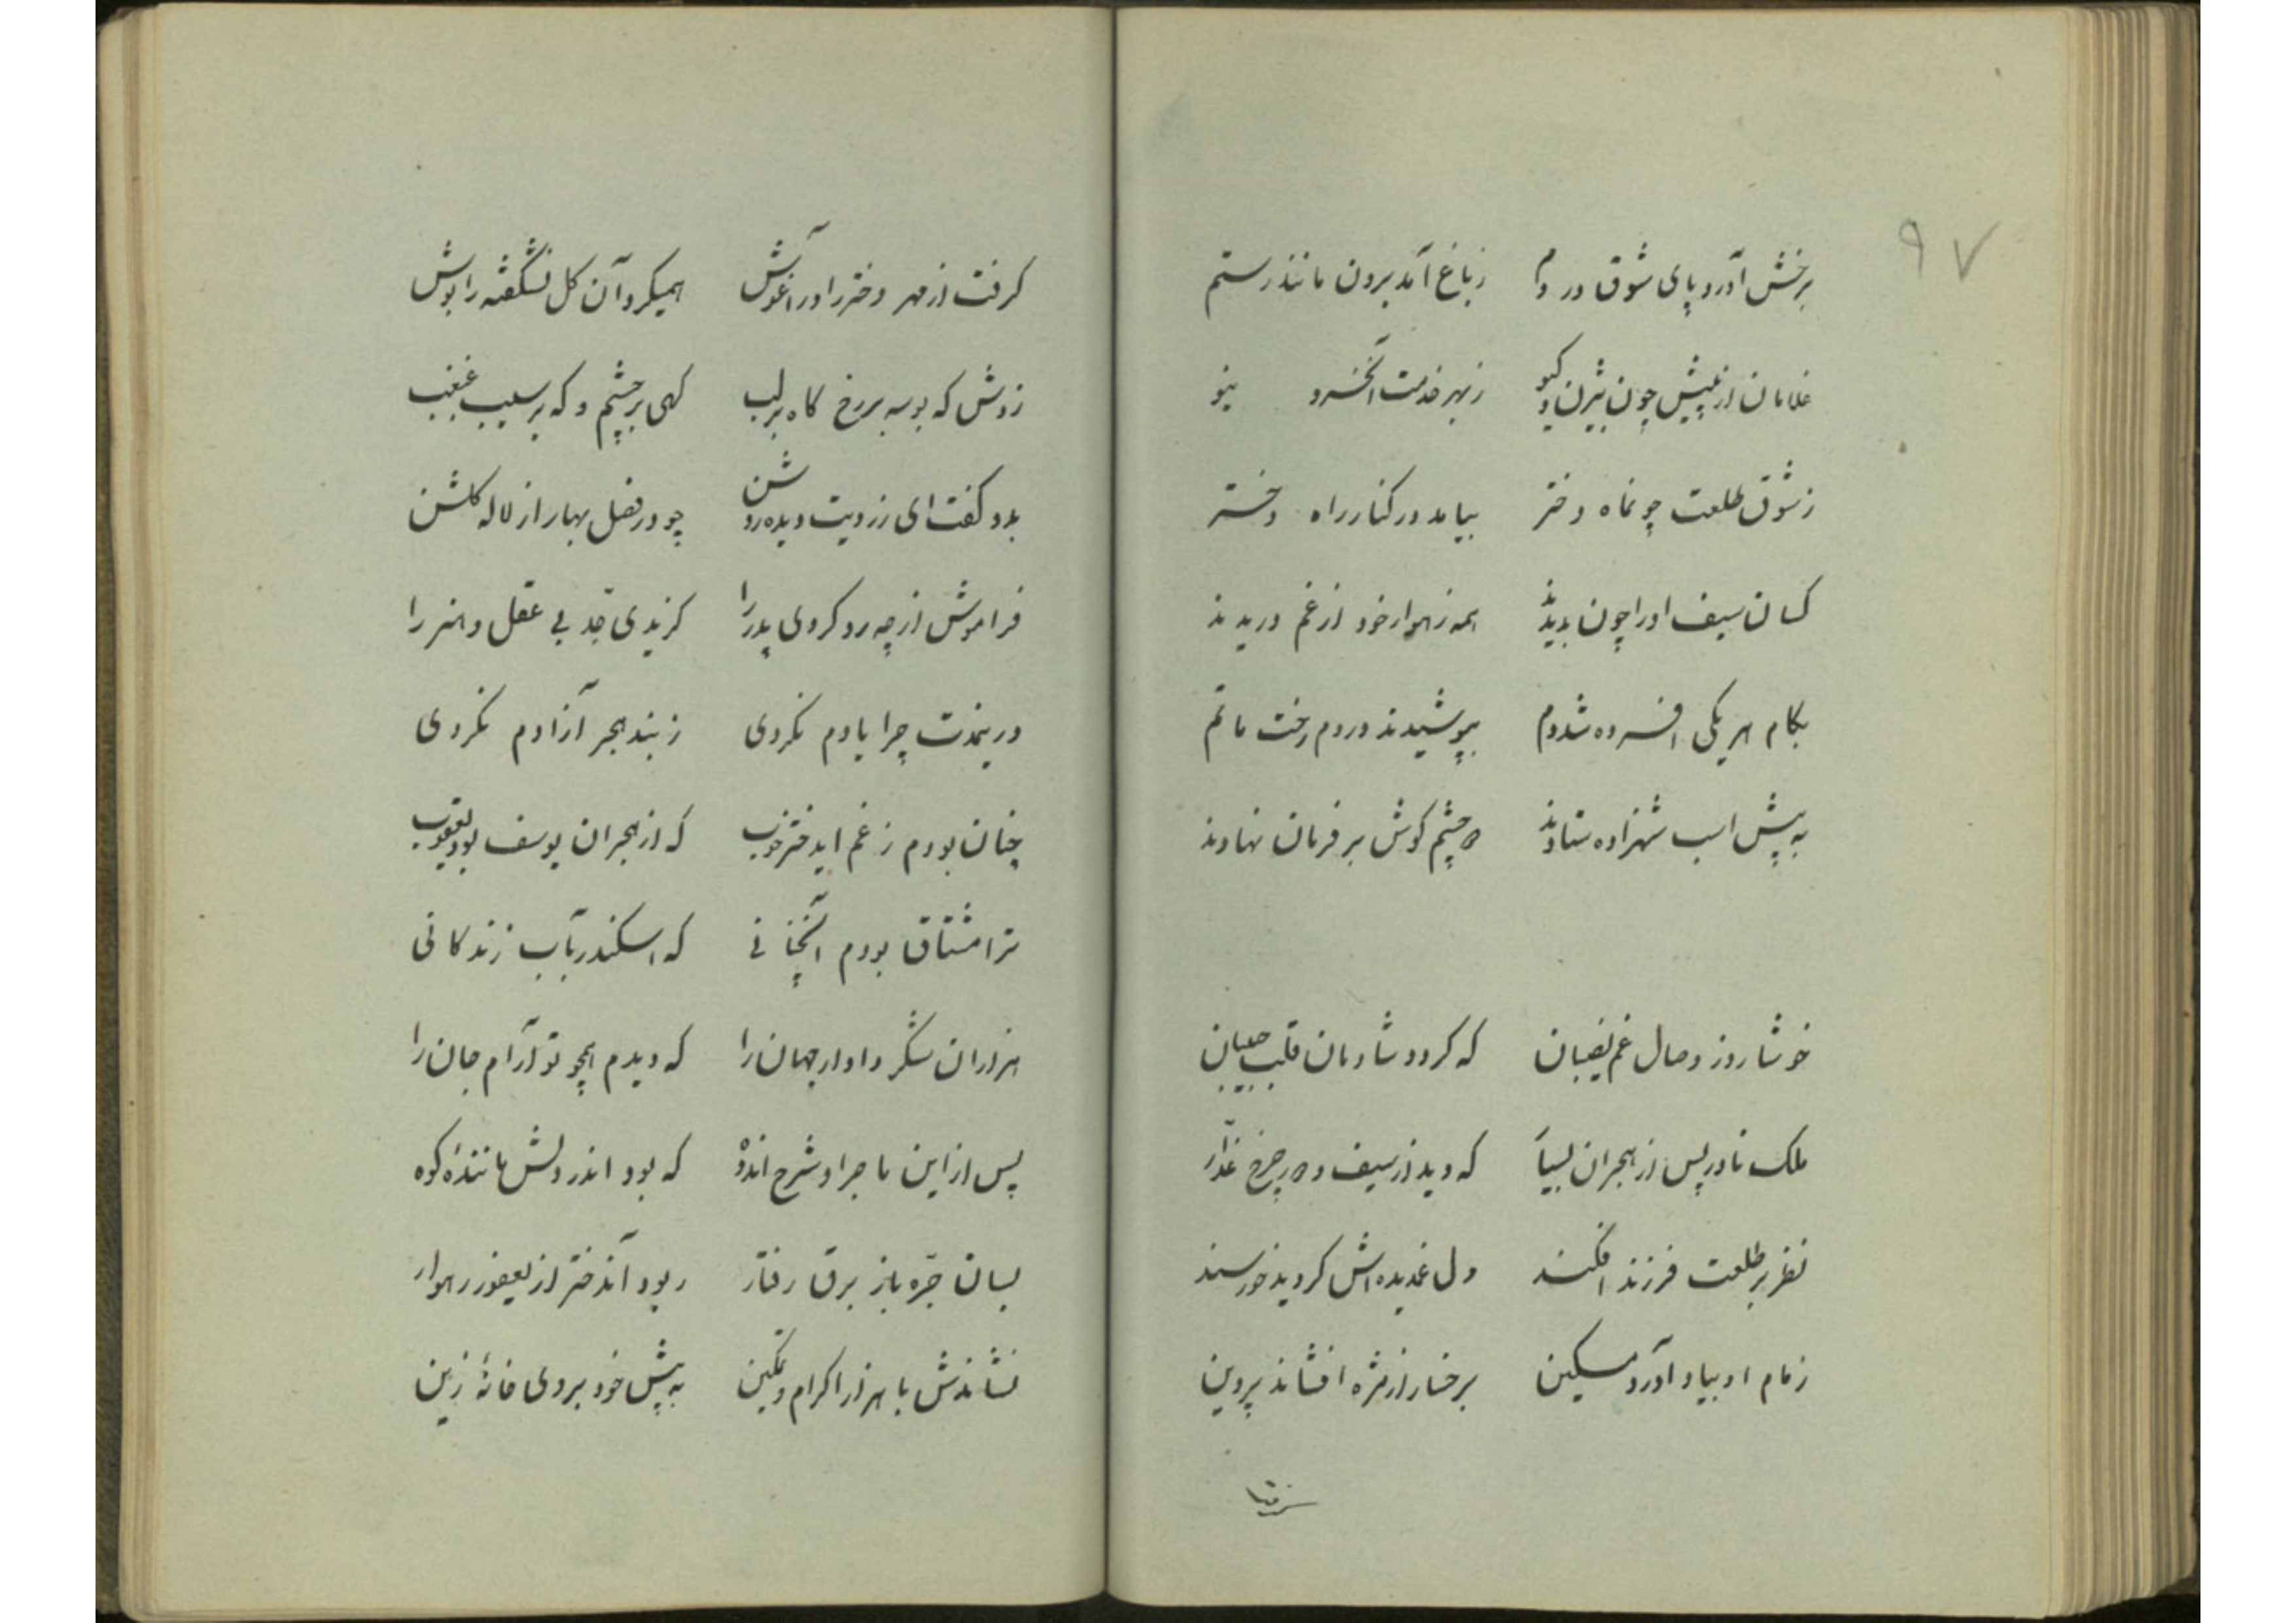 ۹۷
برخش آورد پای شوق در دم زباغ آمد برون مانند رستم
غلامان از پیش چون بیژن و کیو زبهر خدمت آنخسرو نیو
زشوق طلعت چونماه دختر بیامد در کنار راه دختر
کسان سیف اورا چون بدیدند همه زهوار خود از غم دریدند
بکام هر یکی افسرده شد دم بپوشیدند دردم رخت ماتم
به پیش اسب شهزاده ستادند دو چشم کوش بر فرمان نهادند
خوشا روز وصال غم نصیبان که کردد شادمان قلب حبیبان
ملک نادر پس از هجران بسیار که دید از سیف دور چرخ غدار
نظر بر طلعت فرزند افکند دل غمدیده اش کردید خورسند
زمام او بیاد آورد مسکین برخسار از مژه افشاند پروین
کرفت از مهر دختر را در آغوش همیکرد آن کل نشکفته را بوش
زدش که بوسه بر رخ کاه بر لب کهی بر چشم و که بر سیب غبغب
بدو کفت ای ز رویت دیده روشن چو در فصل بهار از لاله کلشن
فراموش از چه رو کردی پدر را کزیدی قد بی عقل و هنر را
درینمدت چرا یادم نکردی زبند هجر آزادم نکردی
چنان بودم زغم ایدختر خوب که از هجران یوسف بود یعقوب
ترا مشتاق بودم آنچنانی که اسکندر بآب زندکانی
هزاران شکر دادار جهان را که دیدم همچو تو آرام جان را
پس از این ماجرا و شرح اندوه که بود اندر دلش مانندهٔ کوه
بسان جره باز برق رفتار ربود آندختر از یعفور رهوار
نشاندش با هزار اکرام و تمکین به پیش خود بروی خانهٔ زین